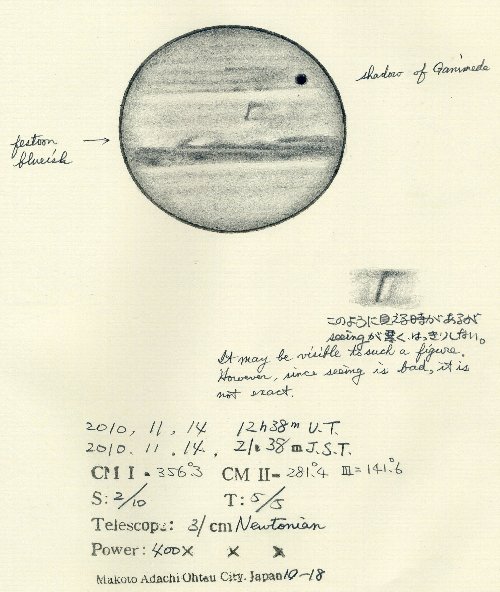 shadow of Ganimede
festoon
blueish
このように見える時があるが
seeingが悪く、はっきりしない。
It may be visible to such a figure.
However, since seeing is bad, it is
not exact.
2010, 11, 14 12h38m U.T.
2010. 11. 14. 21h38m J.S.T.
CM I - 356°.3 CM II - 281°.4 III = 141°.6
S: 2/10 T: 5/5
Telescope: 31cm Newtonian
Power: 400× × ×
Makoto Adachi Ohtsu City. Japan 10-18